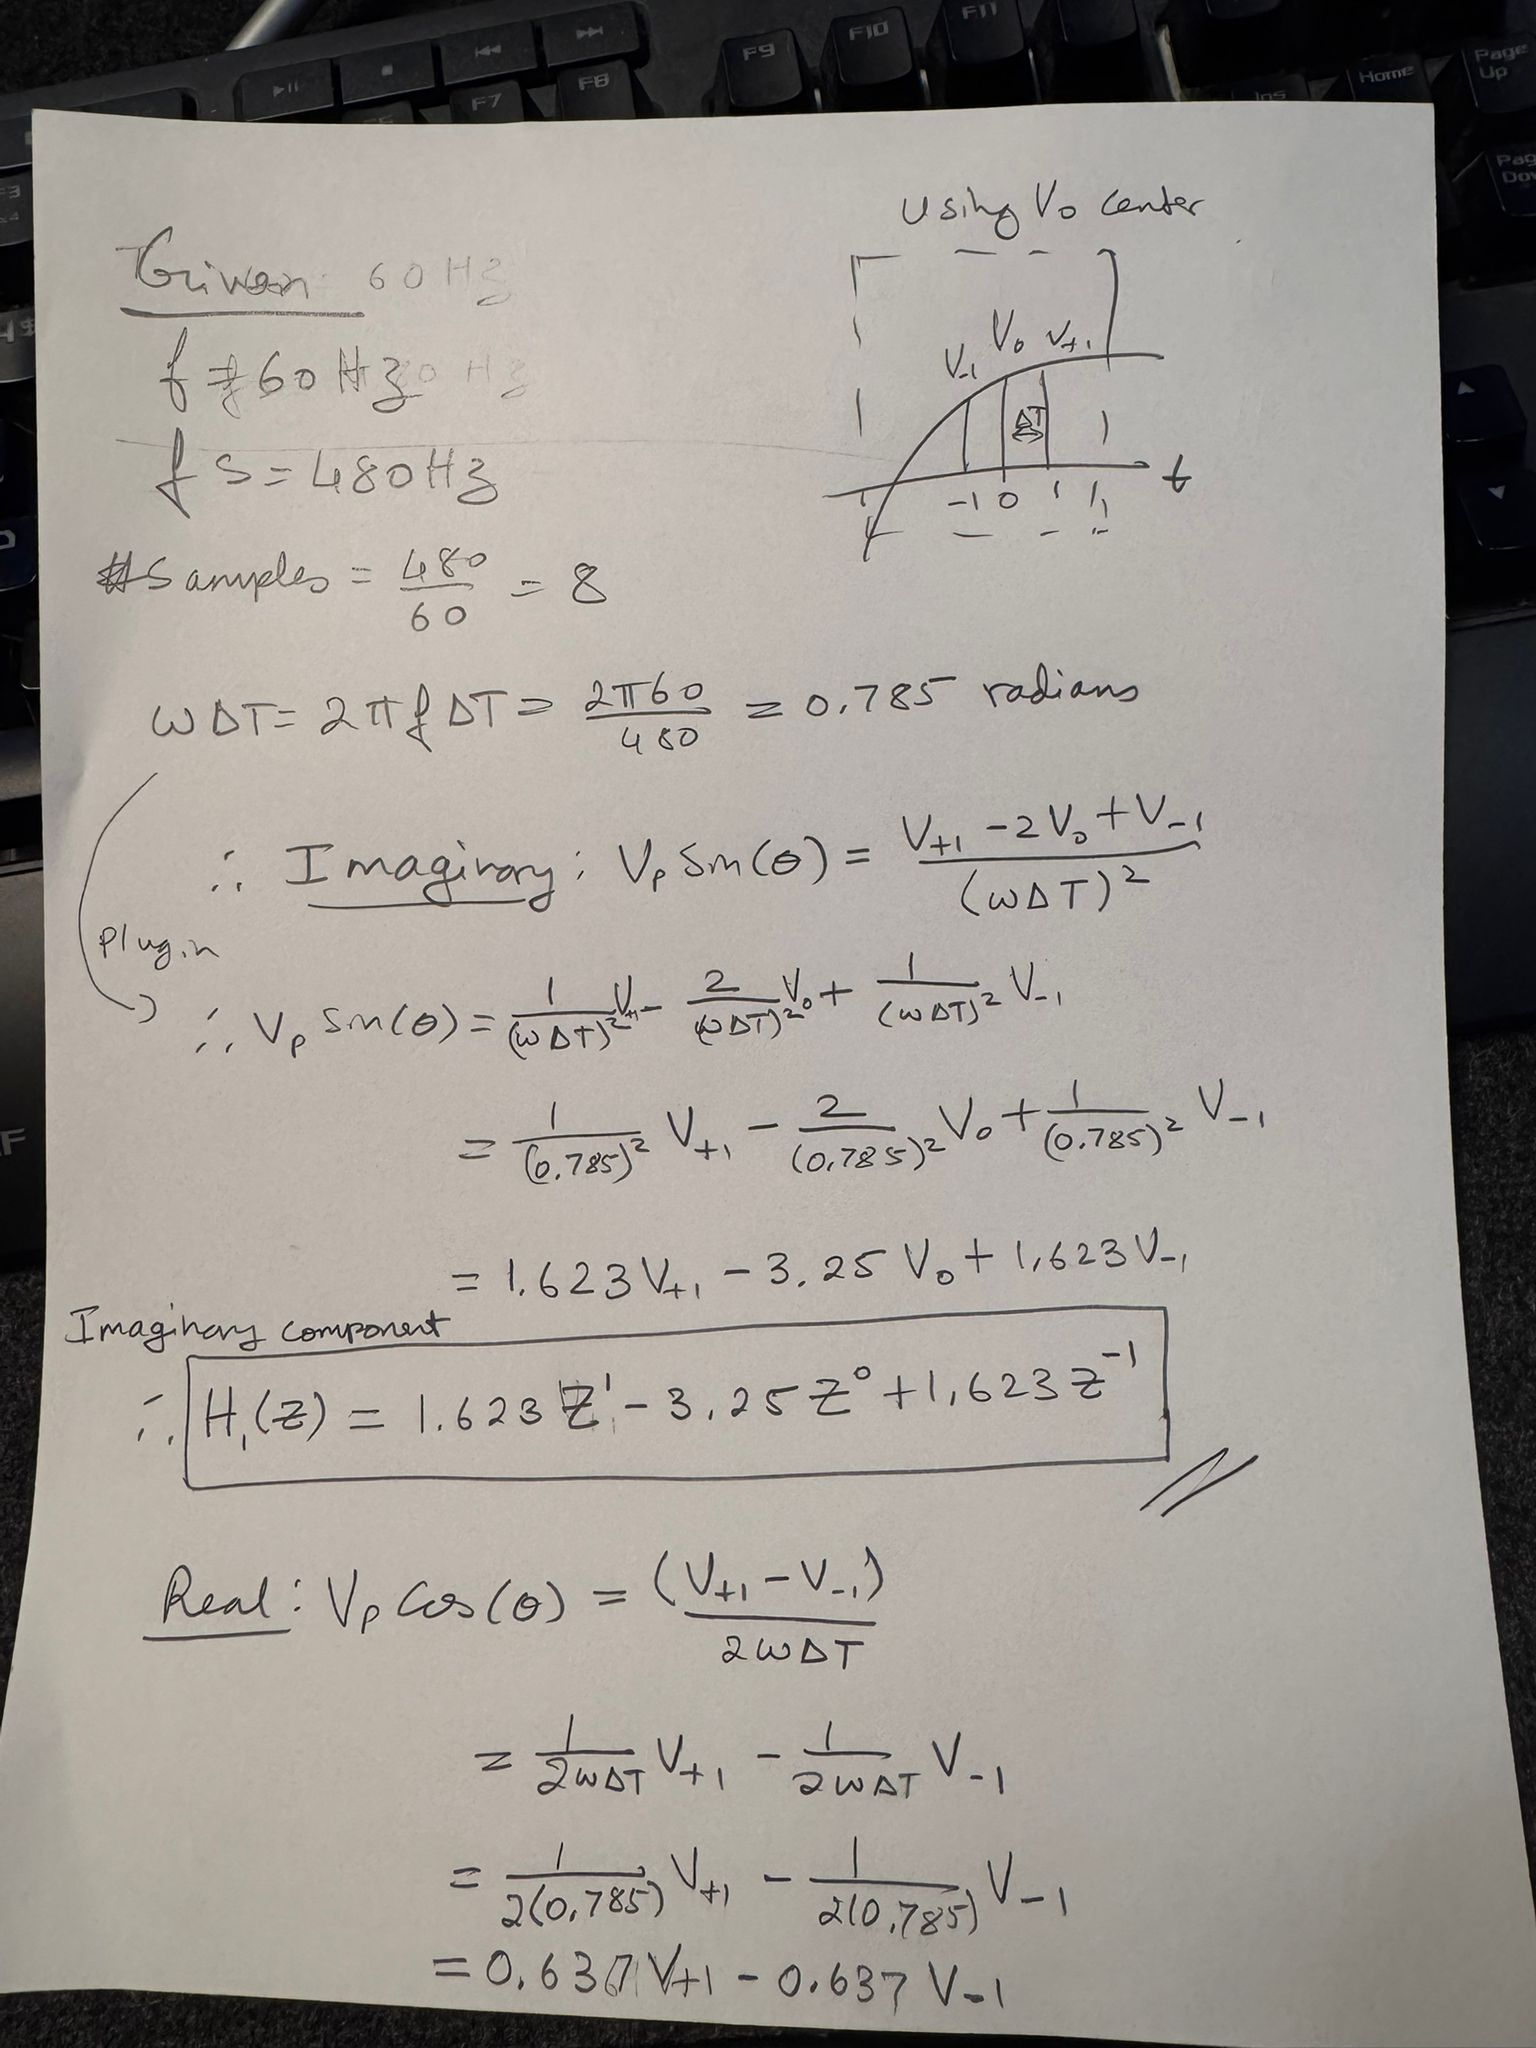 F9 F10 F11
F7 F8 Home Page Up
Ins
F3
Using V₀ center
Given 60 Hz
f = 60 Hz 0 Hz
V₋₁ V₀ V₊₁
ΔT
fs = 480 Hz
t
-1 0 1
#Samples = 480/60 = 8
ωΔT = 2πfΔT = 2π60/480 = 0.785 radians
∴ Imaginary: Vₚ Sin(θ) = (V₊₁ - 2V₀ + V₋₁)/(ωΔT)²
Plug in
∴ Vₚ Sin(θ) = 1/(ωΔT)² V₊₁ - 2/(ωΔT)² V₀ + 1/(ωΔT)² V₋₁
= 1/(0.785)² V₊₁ - 2/(0.785)² V₀ + 1/(0.785)² V₋₁
= 1.623 V₊₁ - 3.25 V₀ + 1.623 V₋₁
Imaginary component
∴ H₁(Z) = 1.623 Z¹ - 3.25 Z⁰ + 1.623 Z⁻¹
Real: Vₚ Cos(θ) = (V₊₁ - V₋₁)/2ωΔT
= 1/2ωΔT V₊₁ - 1/2ωΔT V₋₁
= 1/2(0.785) V₊₁ - 1/2(0.785) V₋₁
= 0.637 V₊₁ - 0.637 V₋₁